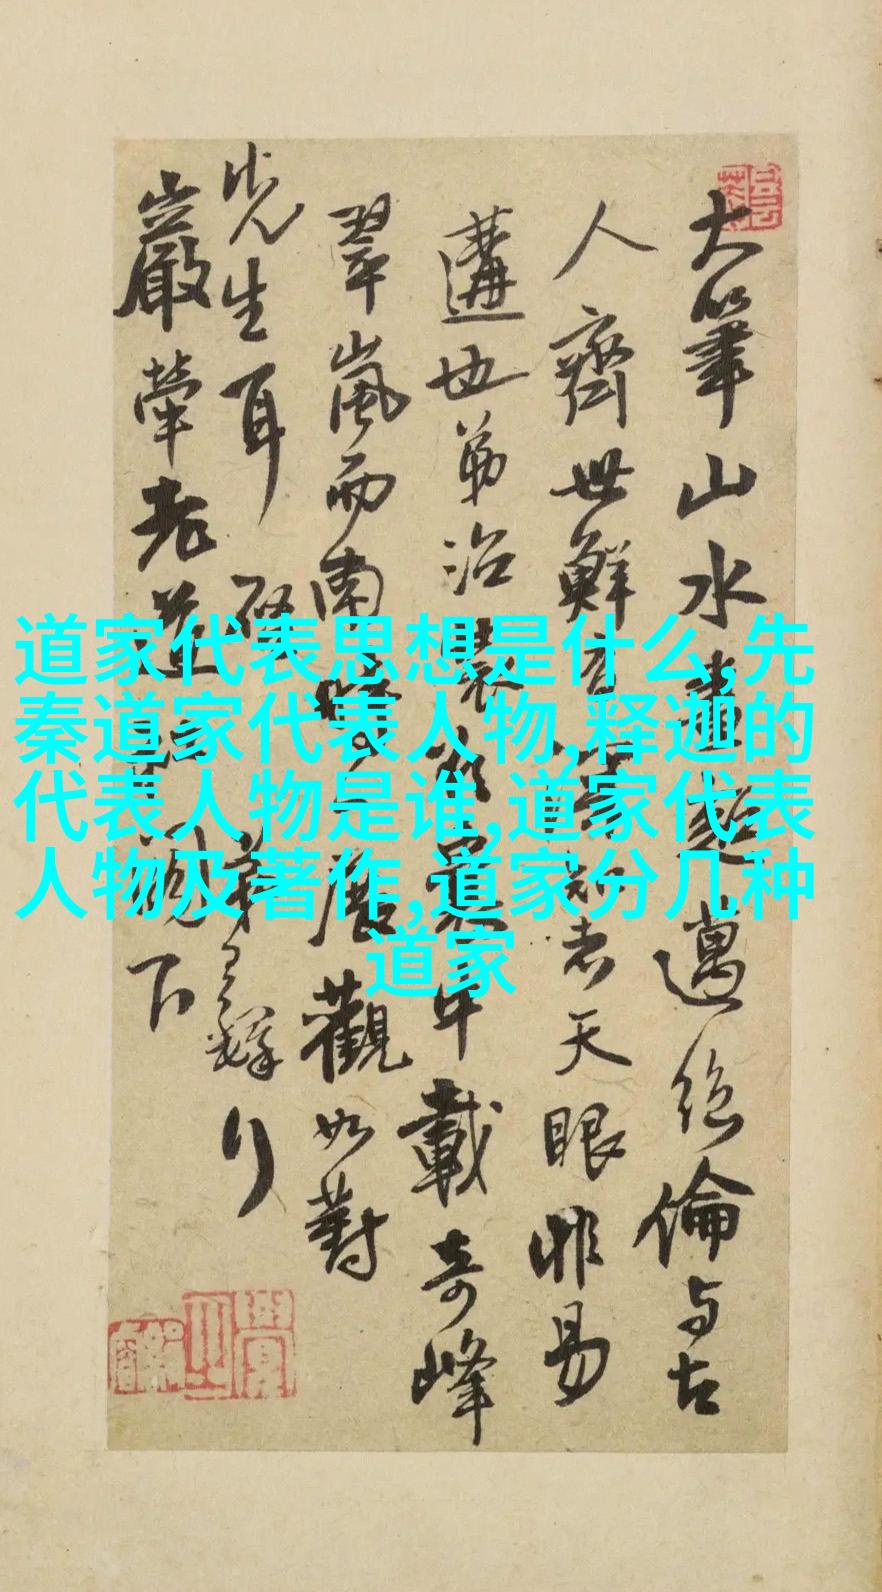 大筆山水畫超邁絕倫与古
人齊世鮮有知者天眼非易
遘也弟治裝中載奇峰
翠嵐而南展觀如對
先生耳
弟
嚴犖老道兄閣下
道家代表思想是什么,先
秦道家代表人物,释迦的
代表人物是谁,道家代表
人物及著作,道家分几种
道家